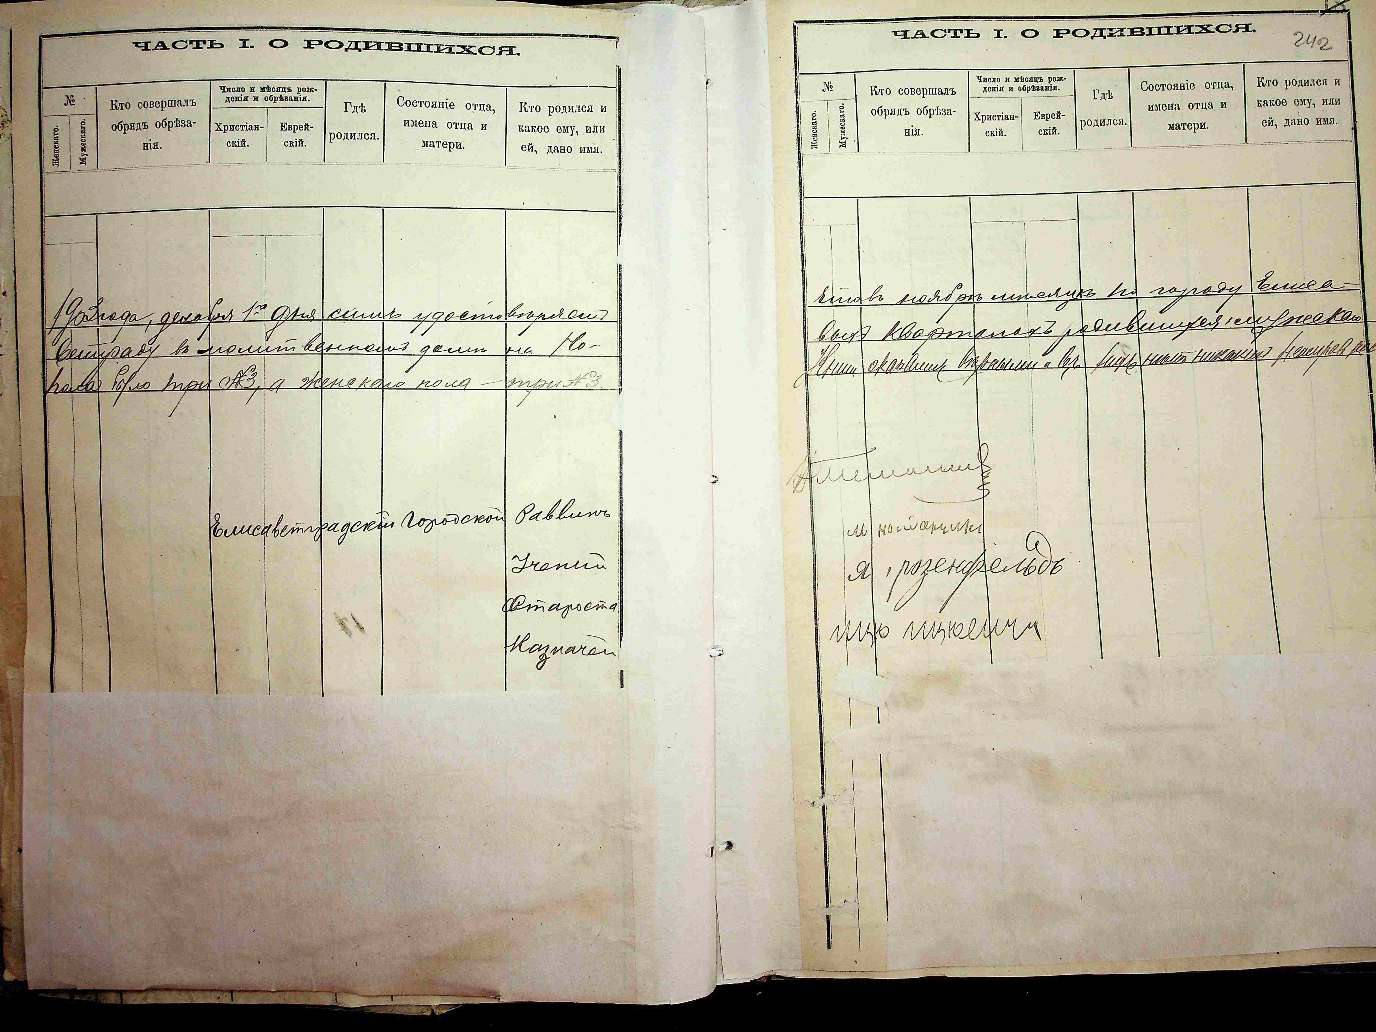 ЧАСТЬ I. О РОДИВШИХСЯ.
№
Женскаго.
Мужескаго.
Кто совершалъ
обрядъ обрѣза-
нія.
Число и мѣсяцъ рож-
денія и обрѣзанія.
Христіан-
скій.
Еврей-
скій.
Гдѣ
родился.
Состояніе отца,
имена отца и
матери.
Кто родился и
какое ему, или
ей, дано имя.
1903 года, декабря 1го дня симъ удостовѣряемъ
ветграду въ молитвенномъ домѣ на Но-
пола было три №3, а женскаго пола – три №3.
Елисаветградскій Городской Раввинъ
Ученый
Староста
Казначей
ЧАСТЬ I. О РОДИВШИХСЯ.
242
№
Женскаго.
Мужескаго.
Кто совершалъ
обрядъ обрѣза-
нія.
Число и мѣсяцъ рож-
денія и обрѣзанія.
Христіан-
скій.
Еврей-
скій.
Гдѣ
родился.
Состояніе отца,
имена отца и
матери.
Кто родился и
какое ему, или
ей, дано имя.
ноябрѣ мѣсяцѣ по городу Елиса-
выхъ кварталахъ родившихся: мужскаго
никакихъ
Я. розенфельдъ